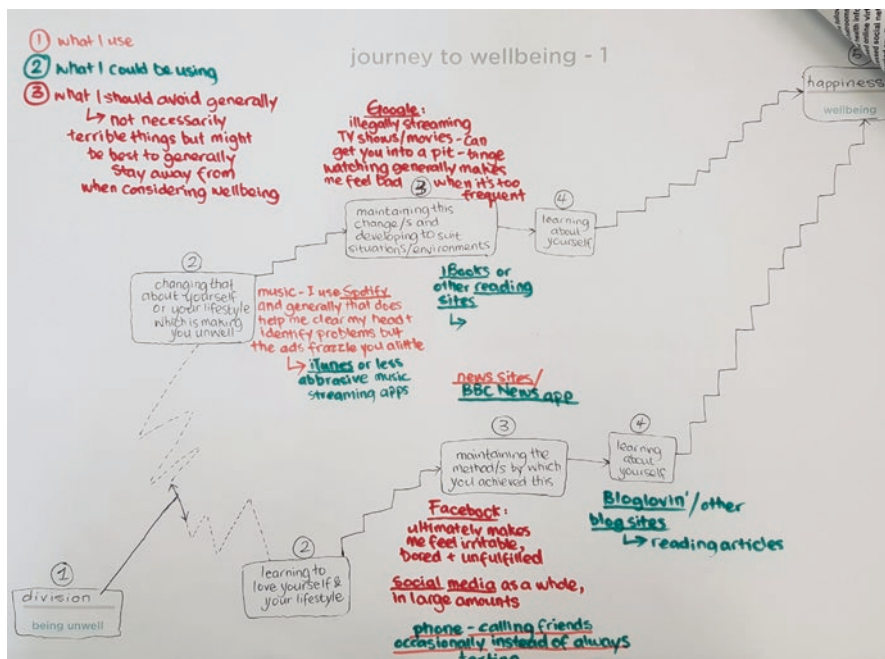 journey to wellbeing - 1
① what I use
② what I could be using
③ what I should avoid generally
↳ not necessarily
terrible things but might
be best to generally
stay away from
when considering wellbeing
Google:
illegally streaming
TV shows/movies - can
get you into a pit - binge
watching generally makes
me feel bad when it's too
frequent
③
maintaining this
change/s and
developing to suit
situations/environments
④
learning
about
yourself
⑤
happiness
wellbeing
②
changing that
about yourself
or your lifestyle
which is making
you unwell
music - I use Spotify
and generally that does
help me clear my head +
identify problems but
the ads frazzle you a little
↳ iTunes or less
abbrasive music
streaming apps
iBooks or
other reading
sites
↳
news sites/
BBC News app
③
maintaining the
method/s by which
you achieved this
④
learning
about
yourself
Bloglovin'/other
blog sites
↳ reading articles
Facebook:
ultimately makes
me feel irritable,
bored + unfulfilled
Social media as a whole,
in large amounts
phone - calling friends
occasionally instead of always
texting
②
learning to
love yourself &
your lifestyle
①
division
being unwell